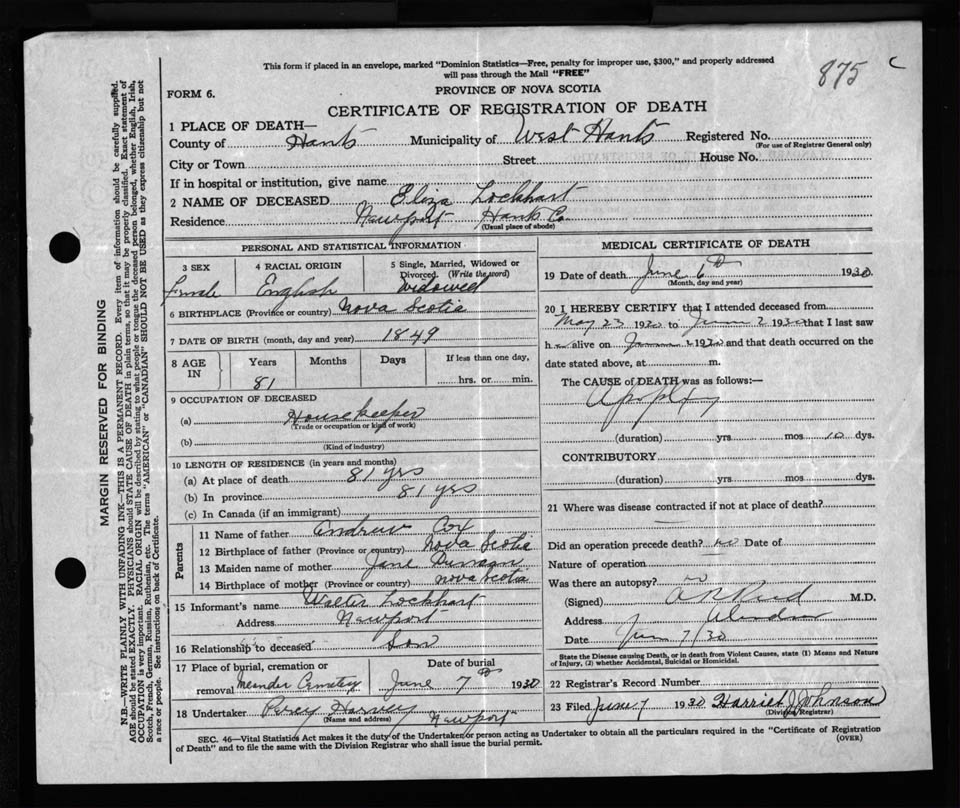 875 C
This form if placed in an envelope, marked "Dominion Statistics—Free, penalty for improper use, $300," and properly addressed
will pass through the Mail "FREE"
FORM 6.
PROVINCE OF NOVA SCOTIA
CERTIFICATE OF REGISTRATION OF DEATH
1 PLACE OF DEATH—
County of Hants Municipality of West Hants Registered No.
(For use of Registrar General only)
City or Town Street House No.
If in hospital or institution, give name
2 NAME OF DECEASED Eliza Lockhart
Residence Newport Hants Co.
(Usual place of abode)
PERSONAL AND STATISTICAL INFORMATION
3 SEX 4 RACIAL ORIGIN 5 Single, Married, Widowed or
Divorced. (Write the word)
Female English Widowed
6 BIRTHPLACE (Province or country) Nova Scotia
7 DATE OF BIRTH (month, day and year) 1849
8 AGE IN Years Months Days If less than one day,
81 hrs. or min.
9 OCCUPATION OF DECEASED
(a) Housekeeper
(Trade or occupation or kind of work)
(b)
(Kind of industry)
10 LENGTH OF RESIDENCE (in years and months)
(a) At place of death 81 yrs
(b) In province 81 yrs
(c) In Canada (if an immigrant)
Parents
11 Name of father Andrew Cox
12 Birthplace of father (Province or country) Nova Scotia
13 Maiden name of mother Jane Duncan
14 Birthplace of mother (Province or country) Nova Scotia
15 Informant's name Walter Lockhart
Address Newport
16 Relationship to deceased Son
17 Place of burial, cremation or Date of burial
removal Meander Cemetery June 7th 1930
18 Undertaker Percy Harvey Newport
(Name and address)
MEDICAL CERTIFICATE OF DEATH
19 Date of death June 6th 1930
(Month, day and year)
20 I HEREBY CERTIFY that I attended deceased from
May 23 1930 to June 2 1930 that I last saw
h alive on 1930 and that death occurred on the
date stated above, at m.
The CAUSE of DEATH was as follows:—
Apoplexy
(duration) yrs mos 10 dys.
CONTRIBUTORY
(duration) yrs. mos. dys.
21 Where was disease contracted if not at place of death?
—
Did an operation precede death? no Date of
Nature of operation
Was there an autopsy? no
(Signed) Reid M.D.
Address Windsor
Date Jun 7/30
State the Disease causing Death, or in death from Violent Causes, state (1) Means and Nature
of Injury, (2) whether Accidental, Suicidal or Homicidal.
22 Registrar's Record Number
23 Filed June 7 1930 Harriet J Johnson
(Division Registrar)
SEC. 46—Vital Statistics Act makes it the duty of the Undertaker or person acting as Undertaker to obtain all the particulars required in the "Certificate of Registration
of Death" and to file the same with the Division Registrar who shall issue the burial permit.
(OVER)
MARGIN RESERVED FOR BINDING
N.B.—WRITE PLAINLY WITH UNFADING INK—THIS IS A PERMANENT RECORD. Every item of information should be carefully supplied.
AGE should be stated EXACTLY. PHYSICIANS should STATE CAUSE OF DEATH in plain terms, so that it may be properly classified. Exact statement of
OCCUPATION is very important. RACIAL ORIGIN will be described by stating to what people or tongue the deceased person belonged, whether English, Irish,
Scotch, French, German, Russian, Ruthenian, etc. The terms "AMERICAN" or "CANADIAN" SHOULD NOT BE USED as they express citizenship but not
a race or people. See instructions on back of Certificate.